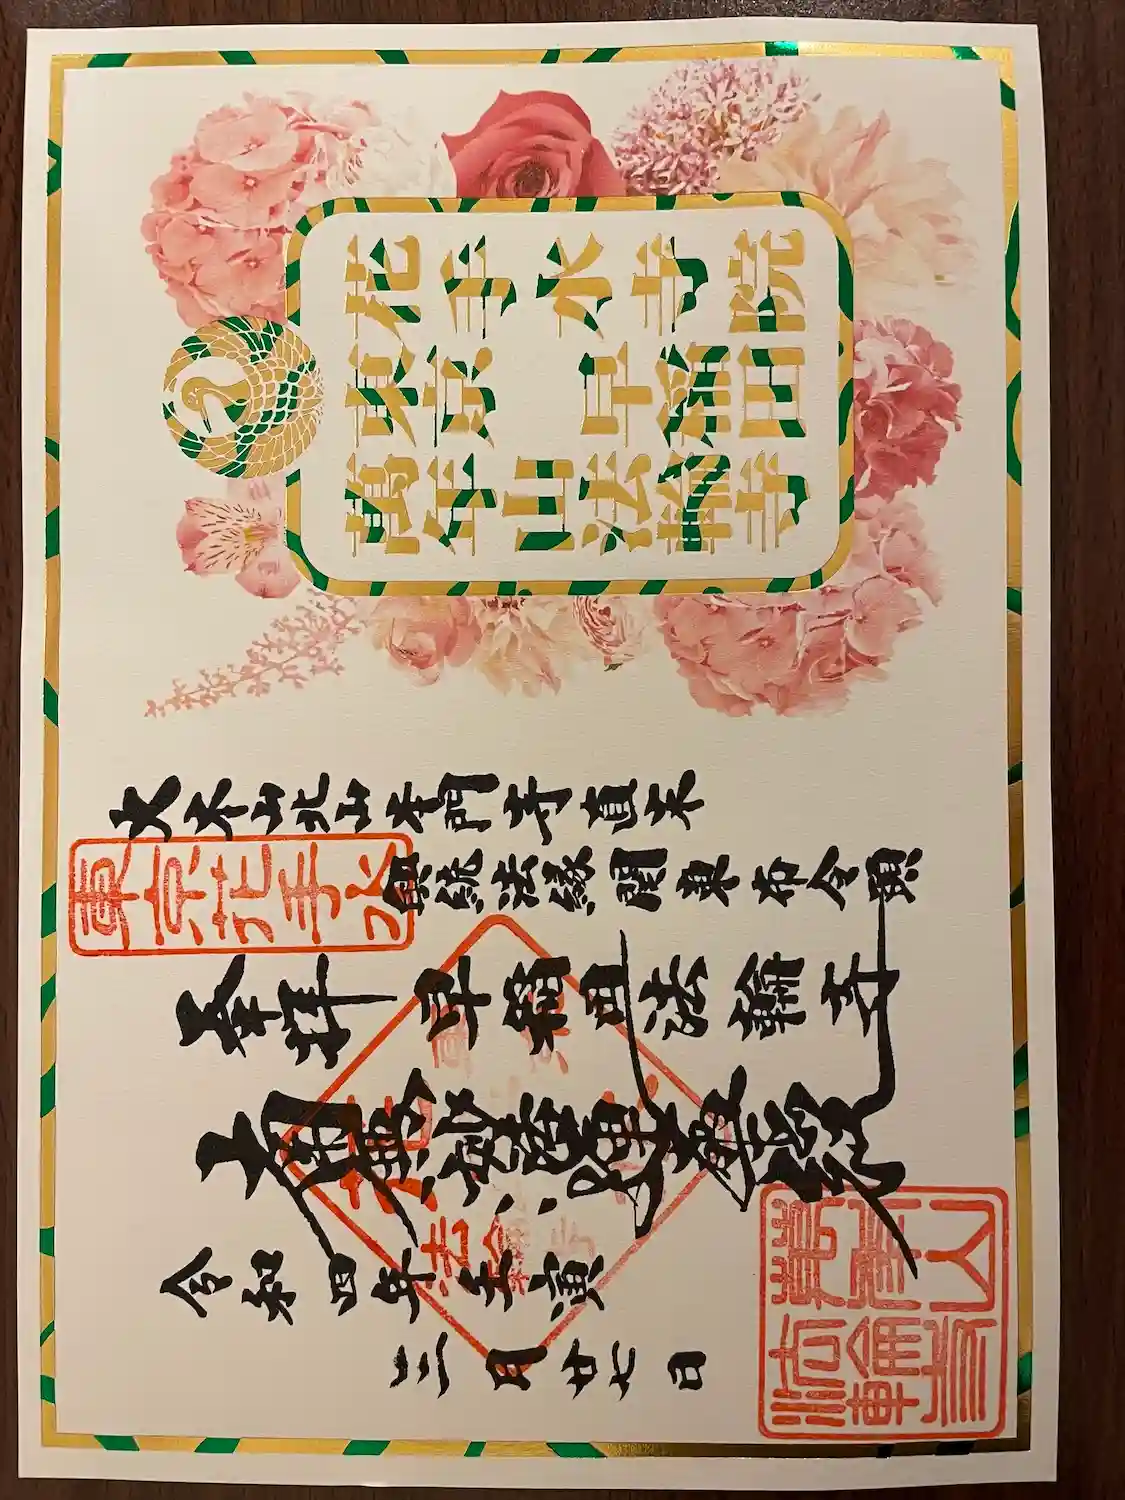 花手水寺院
東京 早稲田
萬年山法輪寺
大本山北山本門寺直末
興統法縁関東布令頭
奉拝 早稲田法輪寺
南無妙法蓮華経
令和四年壬寅
三月廿七日
東京花手水
萬年山
法輪寺